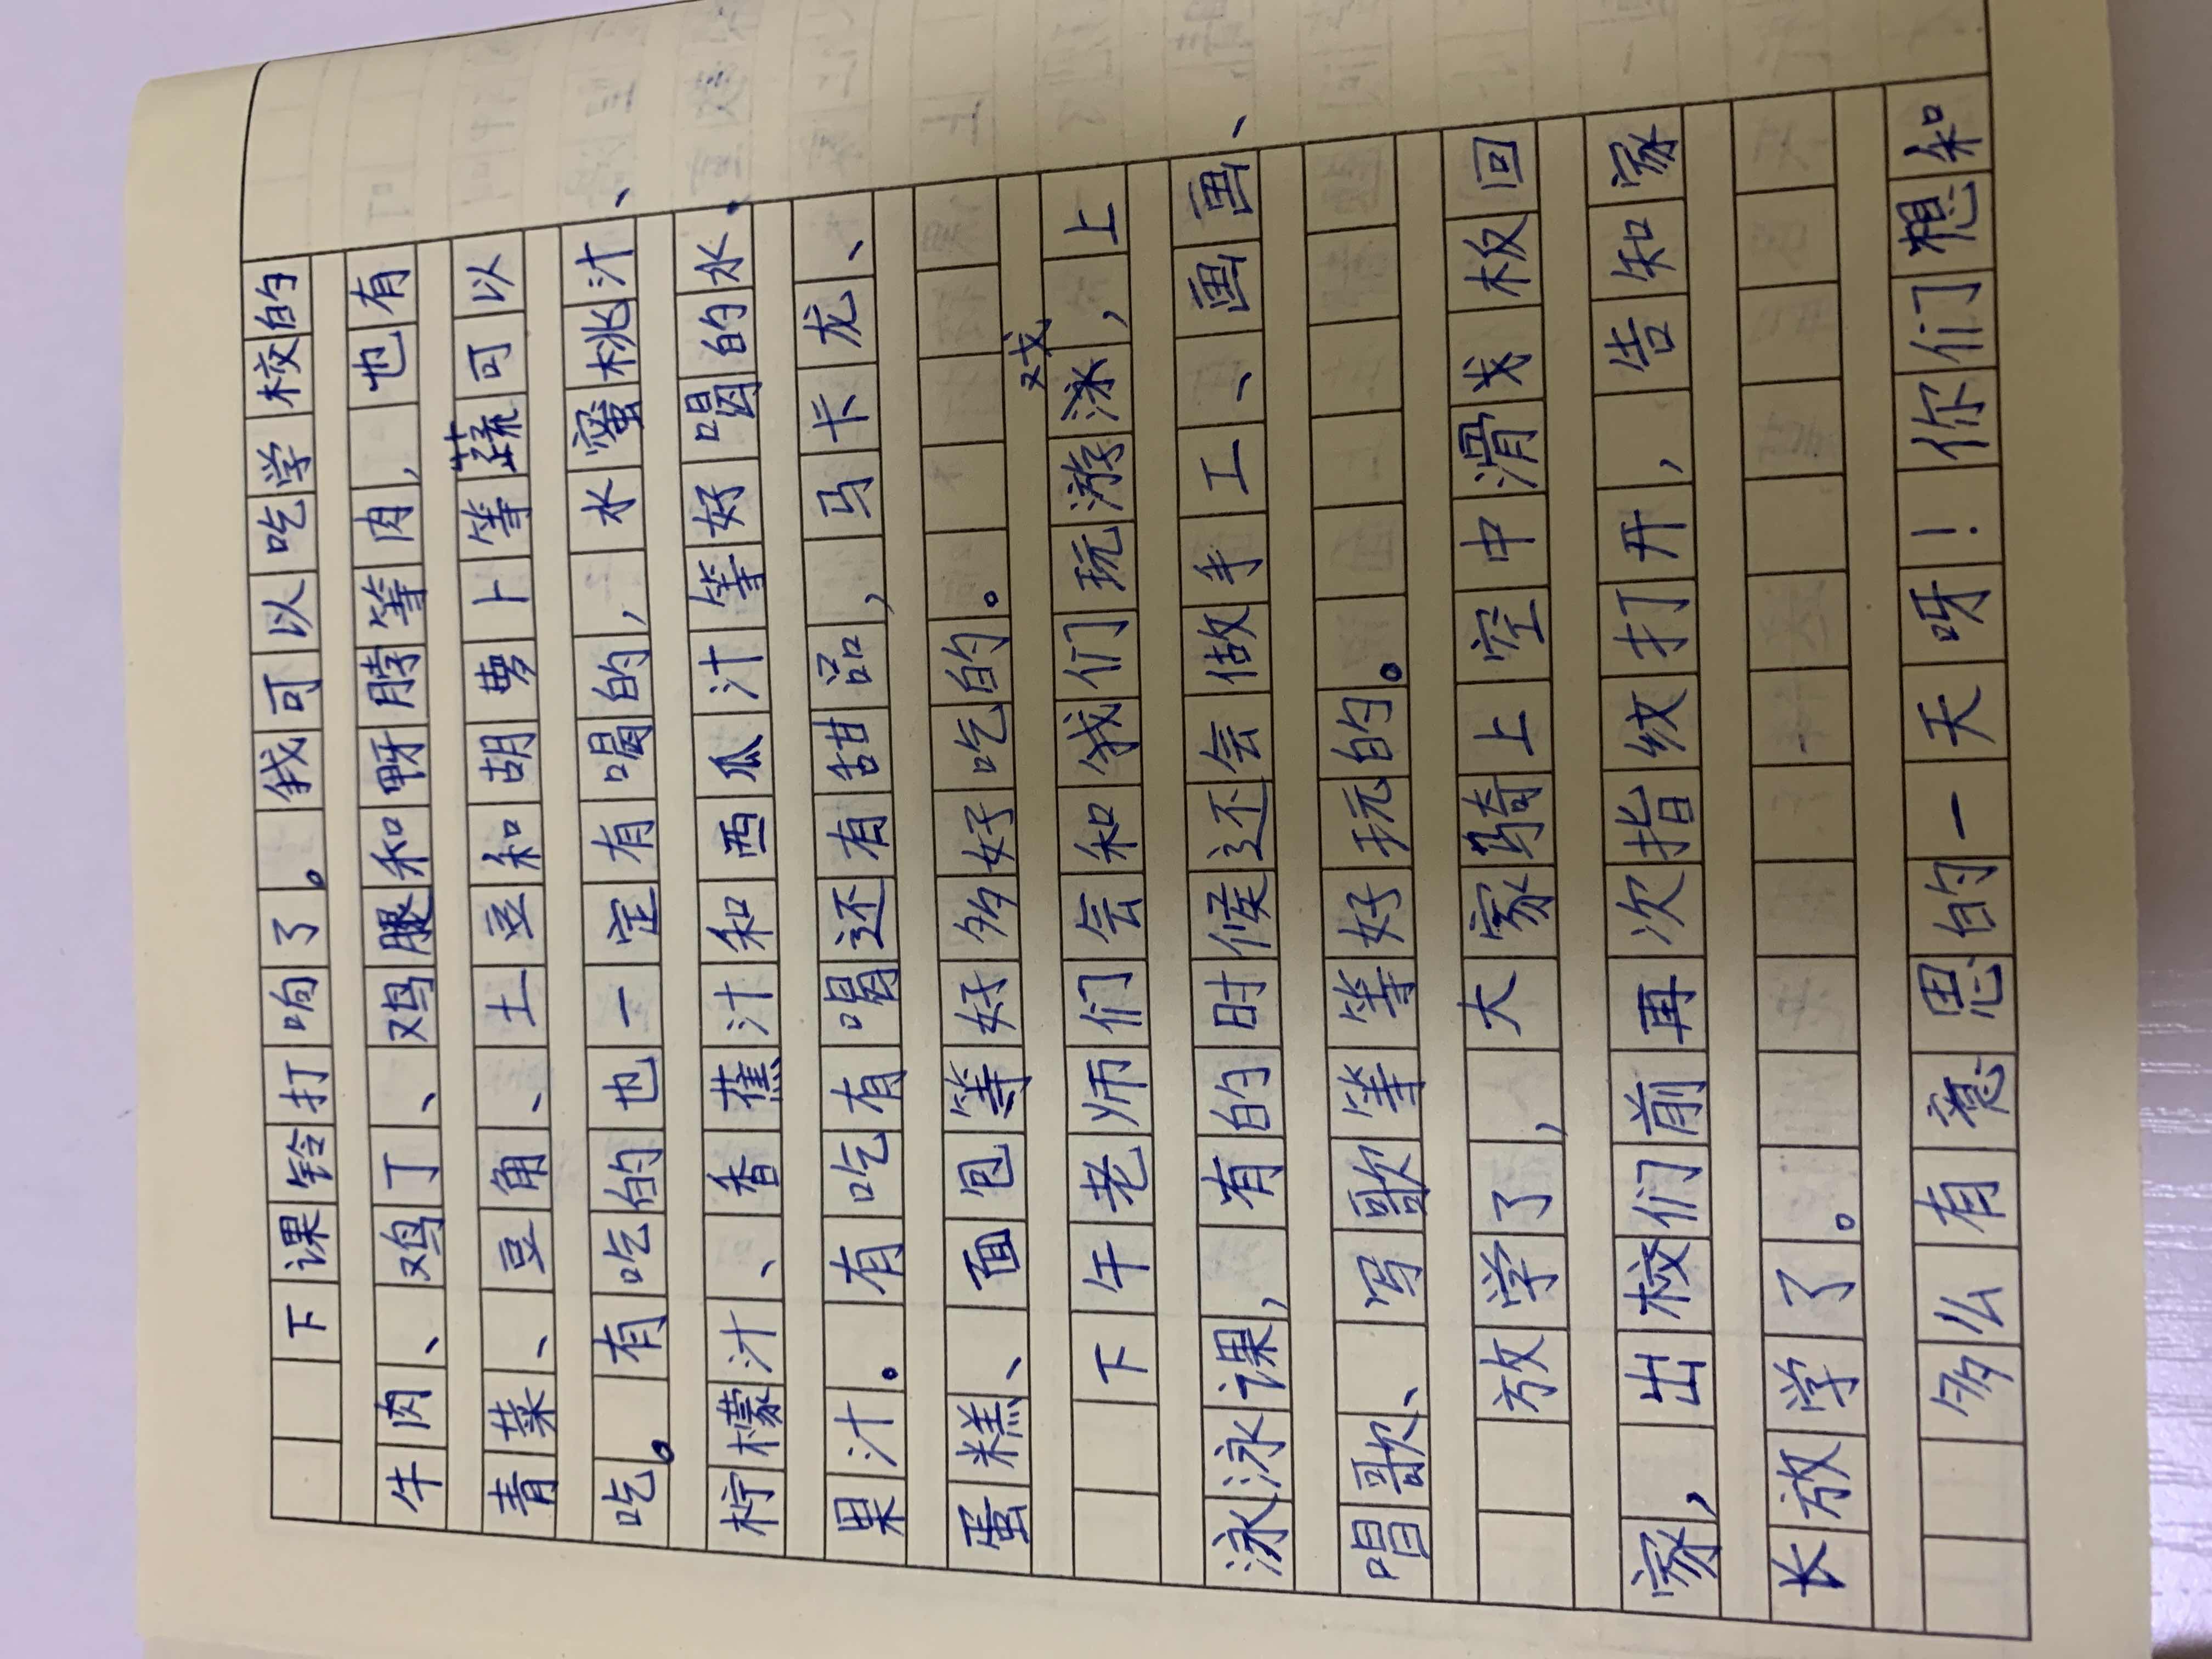 下课铃打响了。我可以吃学校的
牛肉、鸡丁、鸡腿和脖等肉,也有
青菜、豆角、土豆和胡萝卜等蔬可以
吃。有吃的也一定有喝的,水蜜桃汁、
柠檬汁、香蕉汁和西瓜汁等好喝的水
果汁。有吃有喝还有甜品,马卡龙、
蛋糕、面包等好多好好吃的。
下午老师们会和我们玩游戏,上
泳泳课,有的时候还会做手工、画画、
唱歌、写歌等等好玩的。
放学了,大家骑上空中滑板回
家,出校们前再次指纹打开,告知家
长放学了。
多么有意思的一天呀!你们想知